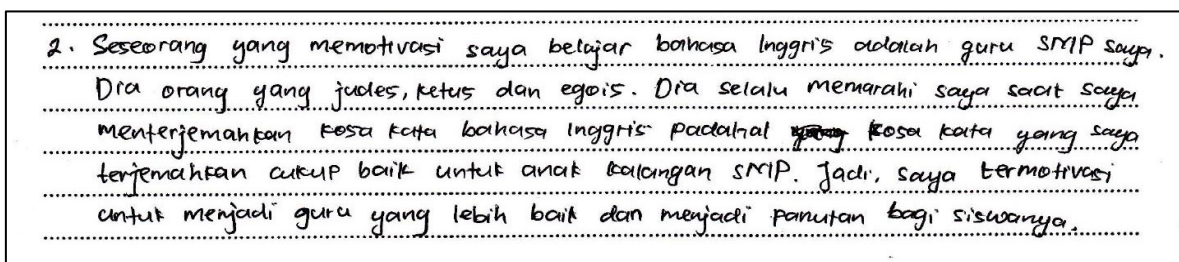 2. Seseorang yang memotivasi saya belajar bahasa Inggris adalah guru SMP saya.
Dia orang yang judes, ketus dan egois. Dia selalu memarahi saya saat saya
menterjemahkan kosa kata bahasa Inggris padahal kosa kata yang saya
terjemahkan cukup baik untuk anak kalangan SMP. Jadi, saya termotivasi
untuk menjadi guru yang lebih baik dan menjadi panutan bagi siswanya.